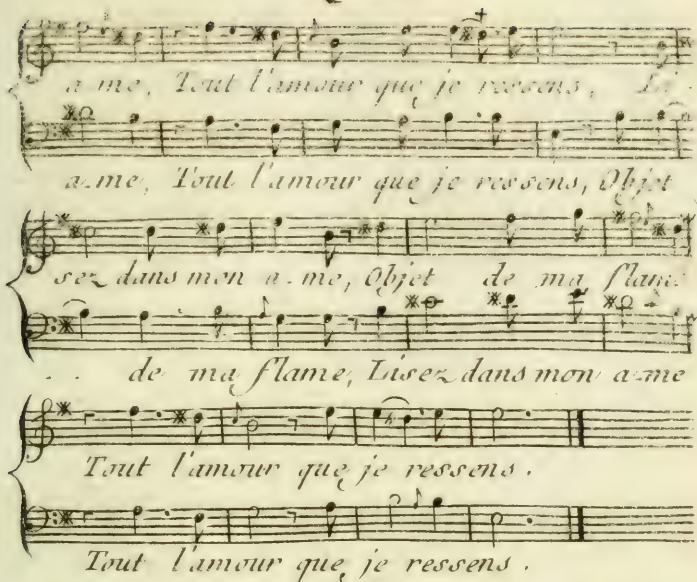 a-me, Tout l'amour que je ressens, Li-
a-me, Tout l'amour que je ressens, Objet
sez dans mon a-me, Objet de ma flame
de ma flame, Lisez dans mon a-me
Tout l'amour que je ressens.
Tout l'amour que je ressens.